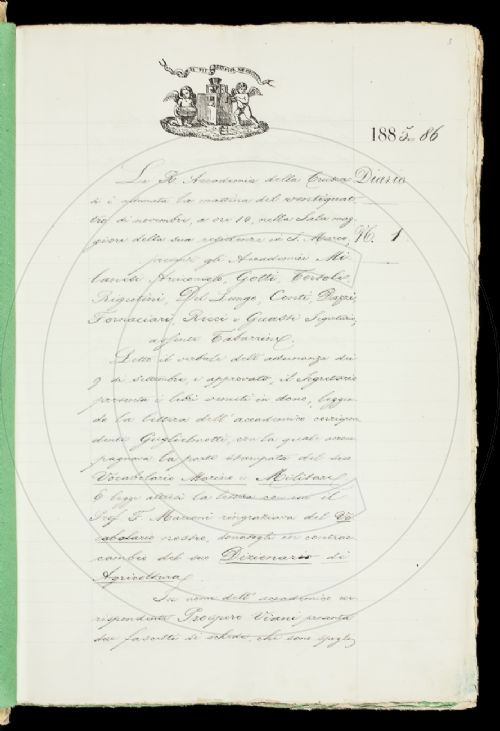 3
IL PIÙ BEL FIOR NE COGLIE
1885-86
La R. Accademia della Crusca Diario
si è adunata la mattina del ventiquat-
tro di novembre, a ore 10, nella Sala mag-
giore della sua residenza in S. Marco, N. 1
presenti gli Accademici Mi-
lanesi Arciconsolo, Gotti, Tortoli,
Rigutini, Del Lungo, Conti, Dazzi,
Fornaciari, Ricci e Guasti Segretario,
assente Tabarrini.
Letto il verbale dell'adunanza dei
9 di settembre, e approvato, il Segretario
presenta i libri venuti in dono, leggen-
do la lettera dell'accademico corrispon-
dente Guglielmotti, con la quale accom-
pagnava la parte stampata del suo
Vocabolario Marino e Militare.
E legge altresì la lettera con cui il
Prof. F. ringraziava del Vo-
cabolario nostro, donatogli in contrac-
cambio del suo Dizionario di
Agricoltura.
In nome dell'accademico cor-
rispondente Prospero Viani presenta
due fascetti di schede, che sono spogli